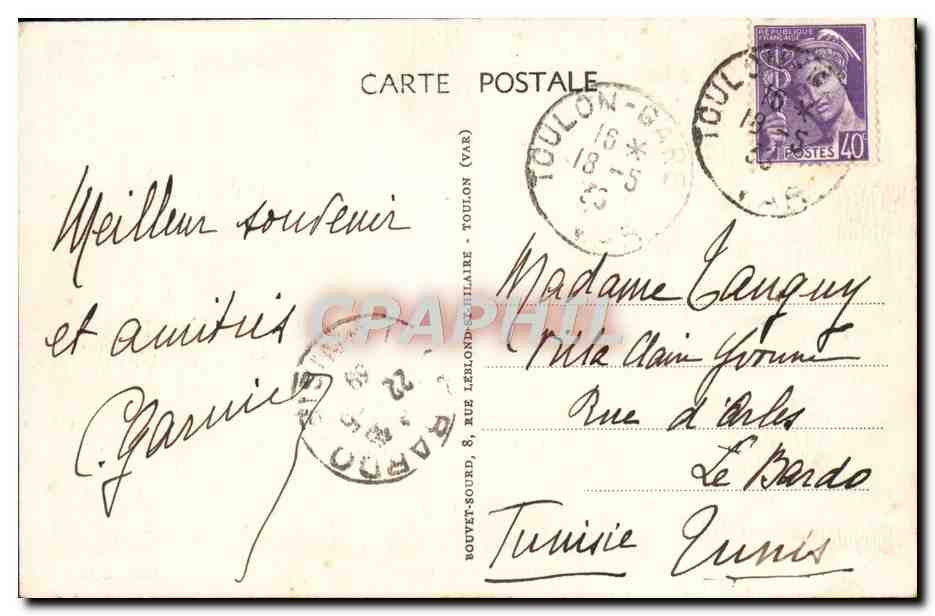 CARTE POSTALE
RÉPUBLIQUE
FRANÇAISE
POSTES 40c
TOULON-GARE
16 *
18 -5
VAR
TOULON
16 *
18 -5
Meilleur souvenir
et amitiés
C. Garnier
BARDO
TUNISIE
22
BOUVET-SOURD, 8, RUE LEBLOND-ST-HILAIRE - TOULON (VAR)
CPAPHIL
Madame Tanguy
Villa Clair Yvonne
Rue d'Arles
Le Bardo
Tunisie Tunis